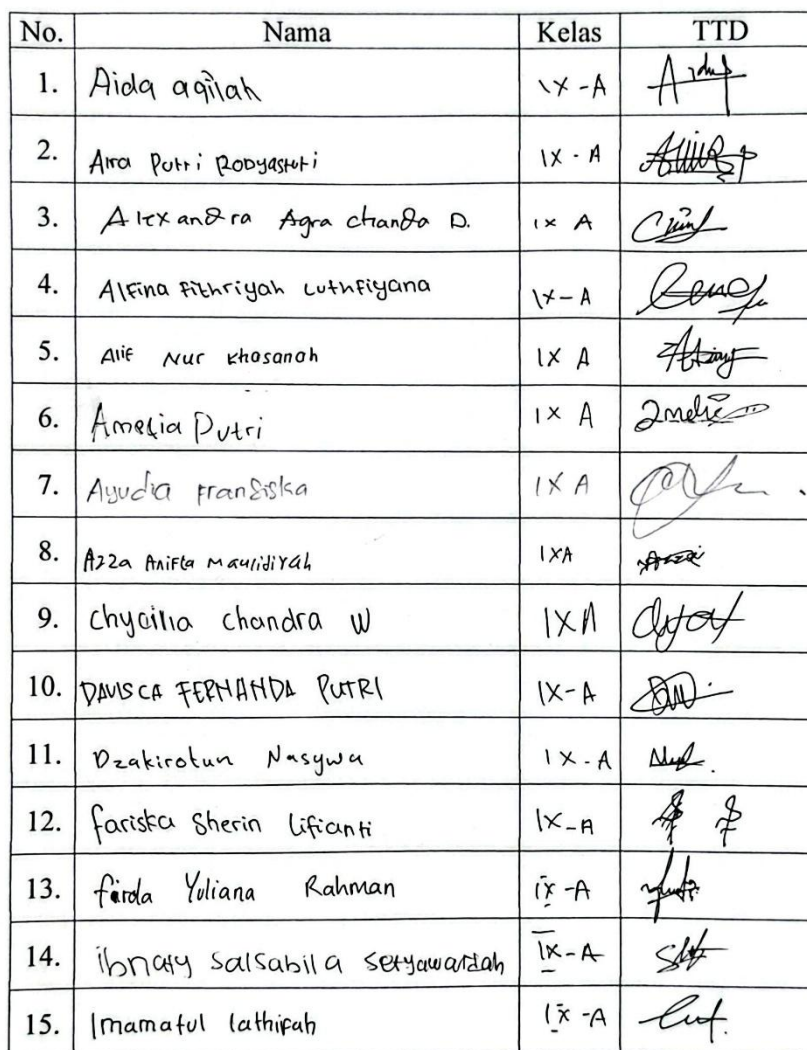 No. Nama Kelas TTD
1. Aida aqilah IX-A
2. Aira Putri Robyastuti IX-A
3. Alexandra Agra chanda D. IX A
4. Alfina Fithriyah Luthfiyana IX-A
5. Alif Nur Khasanah IX A
6. Amelia Putri IX A
7. Ayudia Fransiska IX A
8. Azza Anifta Maulidiyah IXA
9. Chycilia chandra W IXA
10. DAVISCA FERNANDA PUTRI IX-A
11. Dzakirotun Nasywa IX-A
12. fariska Sherin Lifianti IX-A
13. farda Yuliana Rahman IX-A
14. ibnaty salsabila setyawardah IX-A
15. Imamatul lathifah IX-A